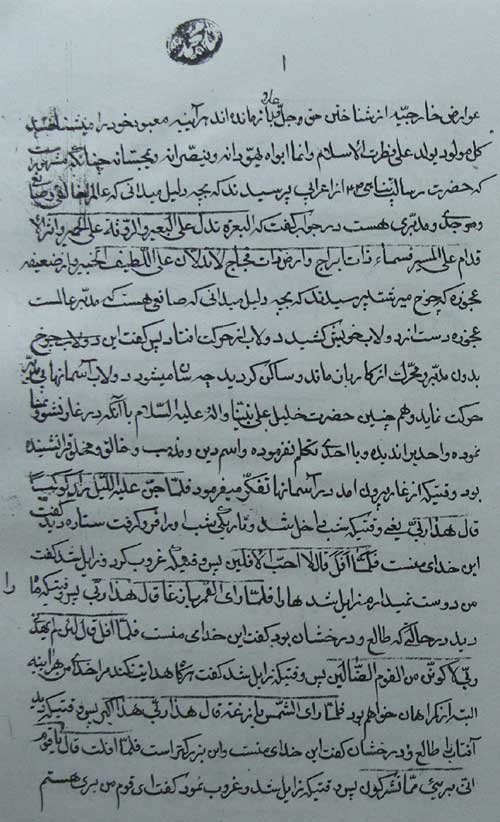 ۱
عوارض خارجیه از شناختن حق و جل باز مانده اند هر آینه معبود خود را میشناختند
کل مولود یولد علی فطرت الاسلام وانما ابواه یهودانه وینصرانه ویمجسانه چنانکه
که حضرت رسالت از اعرابی پرسیدند که بچه دلیل میدانی که عالم را خالقی
و موجدی و مدبری هست در جواب گفت که البعرة تدل علی البعیر والروثة علی الحمیر واثر الا
قدام علی المسیر فسماء ذات ابراج وارض ذات فجاج لا تدلان علی اللطیف الخبیر و از ضعیفه
عجوزه که چرخ میرشت پرسیدند که بچه دلیل میدانی که صانعی هست که مدبر عالمست
عجوزه دست از دولاب خویش کشید دولاب از حرکت افتاد پس گفت این دولاب چرخ
بدون مدبر و محرک از کار باز ماند و ساکن کردید چه سان میشود دولاب آسمانها بی مدبر
حرکت نماید و هم چنین حضرت خلیل علی نبینا وآله وعلیه السلام با آنکه در غار نشو و نما
نموده واحدیرا ندیده و با احدی تکلم نفرموده واسم دین و مذهب و خالق و مخلوق نشنیده
بود وقتیکه از غار بیرون امد در آسمانها تفکر میفرمود فلما جن علیه اللیل رای کوکبا
قال هذا ربی یعنی وقتیکه شب داخل شد و تاریکی شب او را فرو گرفت ستاره دید گفت
این خدای منست فلما افل قال لا احب الافلین پس وقتیکه غروب کرد و زایل شد گفت
من دوست نمیدارم زایل شدها را فلما رای القمر بازغا قال هذا ربی پس وقتیکه ماه را
دید در حالتی که طالع و درخشان بود گفت این خدای منست فلما افل قال لئن لم یهدنی
ربی لاکونن من القوم الضالین پس وقتیکه زایل شد گفت هرگاه هدایت نکند مرا خدای من هر اینه
البته از گمراهان خواهم بود فلما رای الشمس بازغة قال هذا ربی هذا اکبر پس وقتیکه دید
آفتاب را طالع و درخشان گفت این خدای منست واین بزرگتر است فلما افلت قال یا قوم
انی بریئ مما تشرکون پس وقتیکه زایل شد و غروب نمود گفت ای قوم من بری هستم